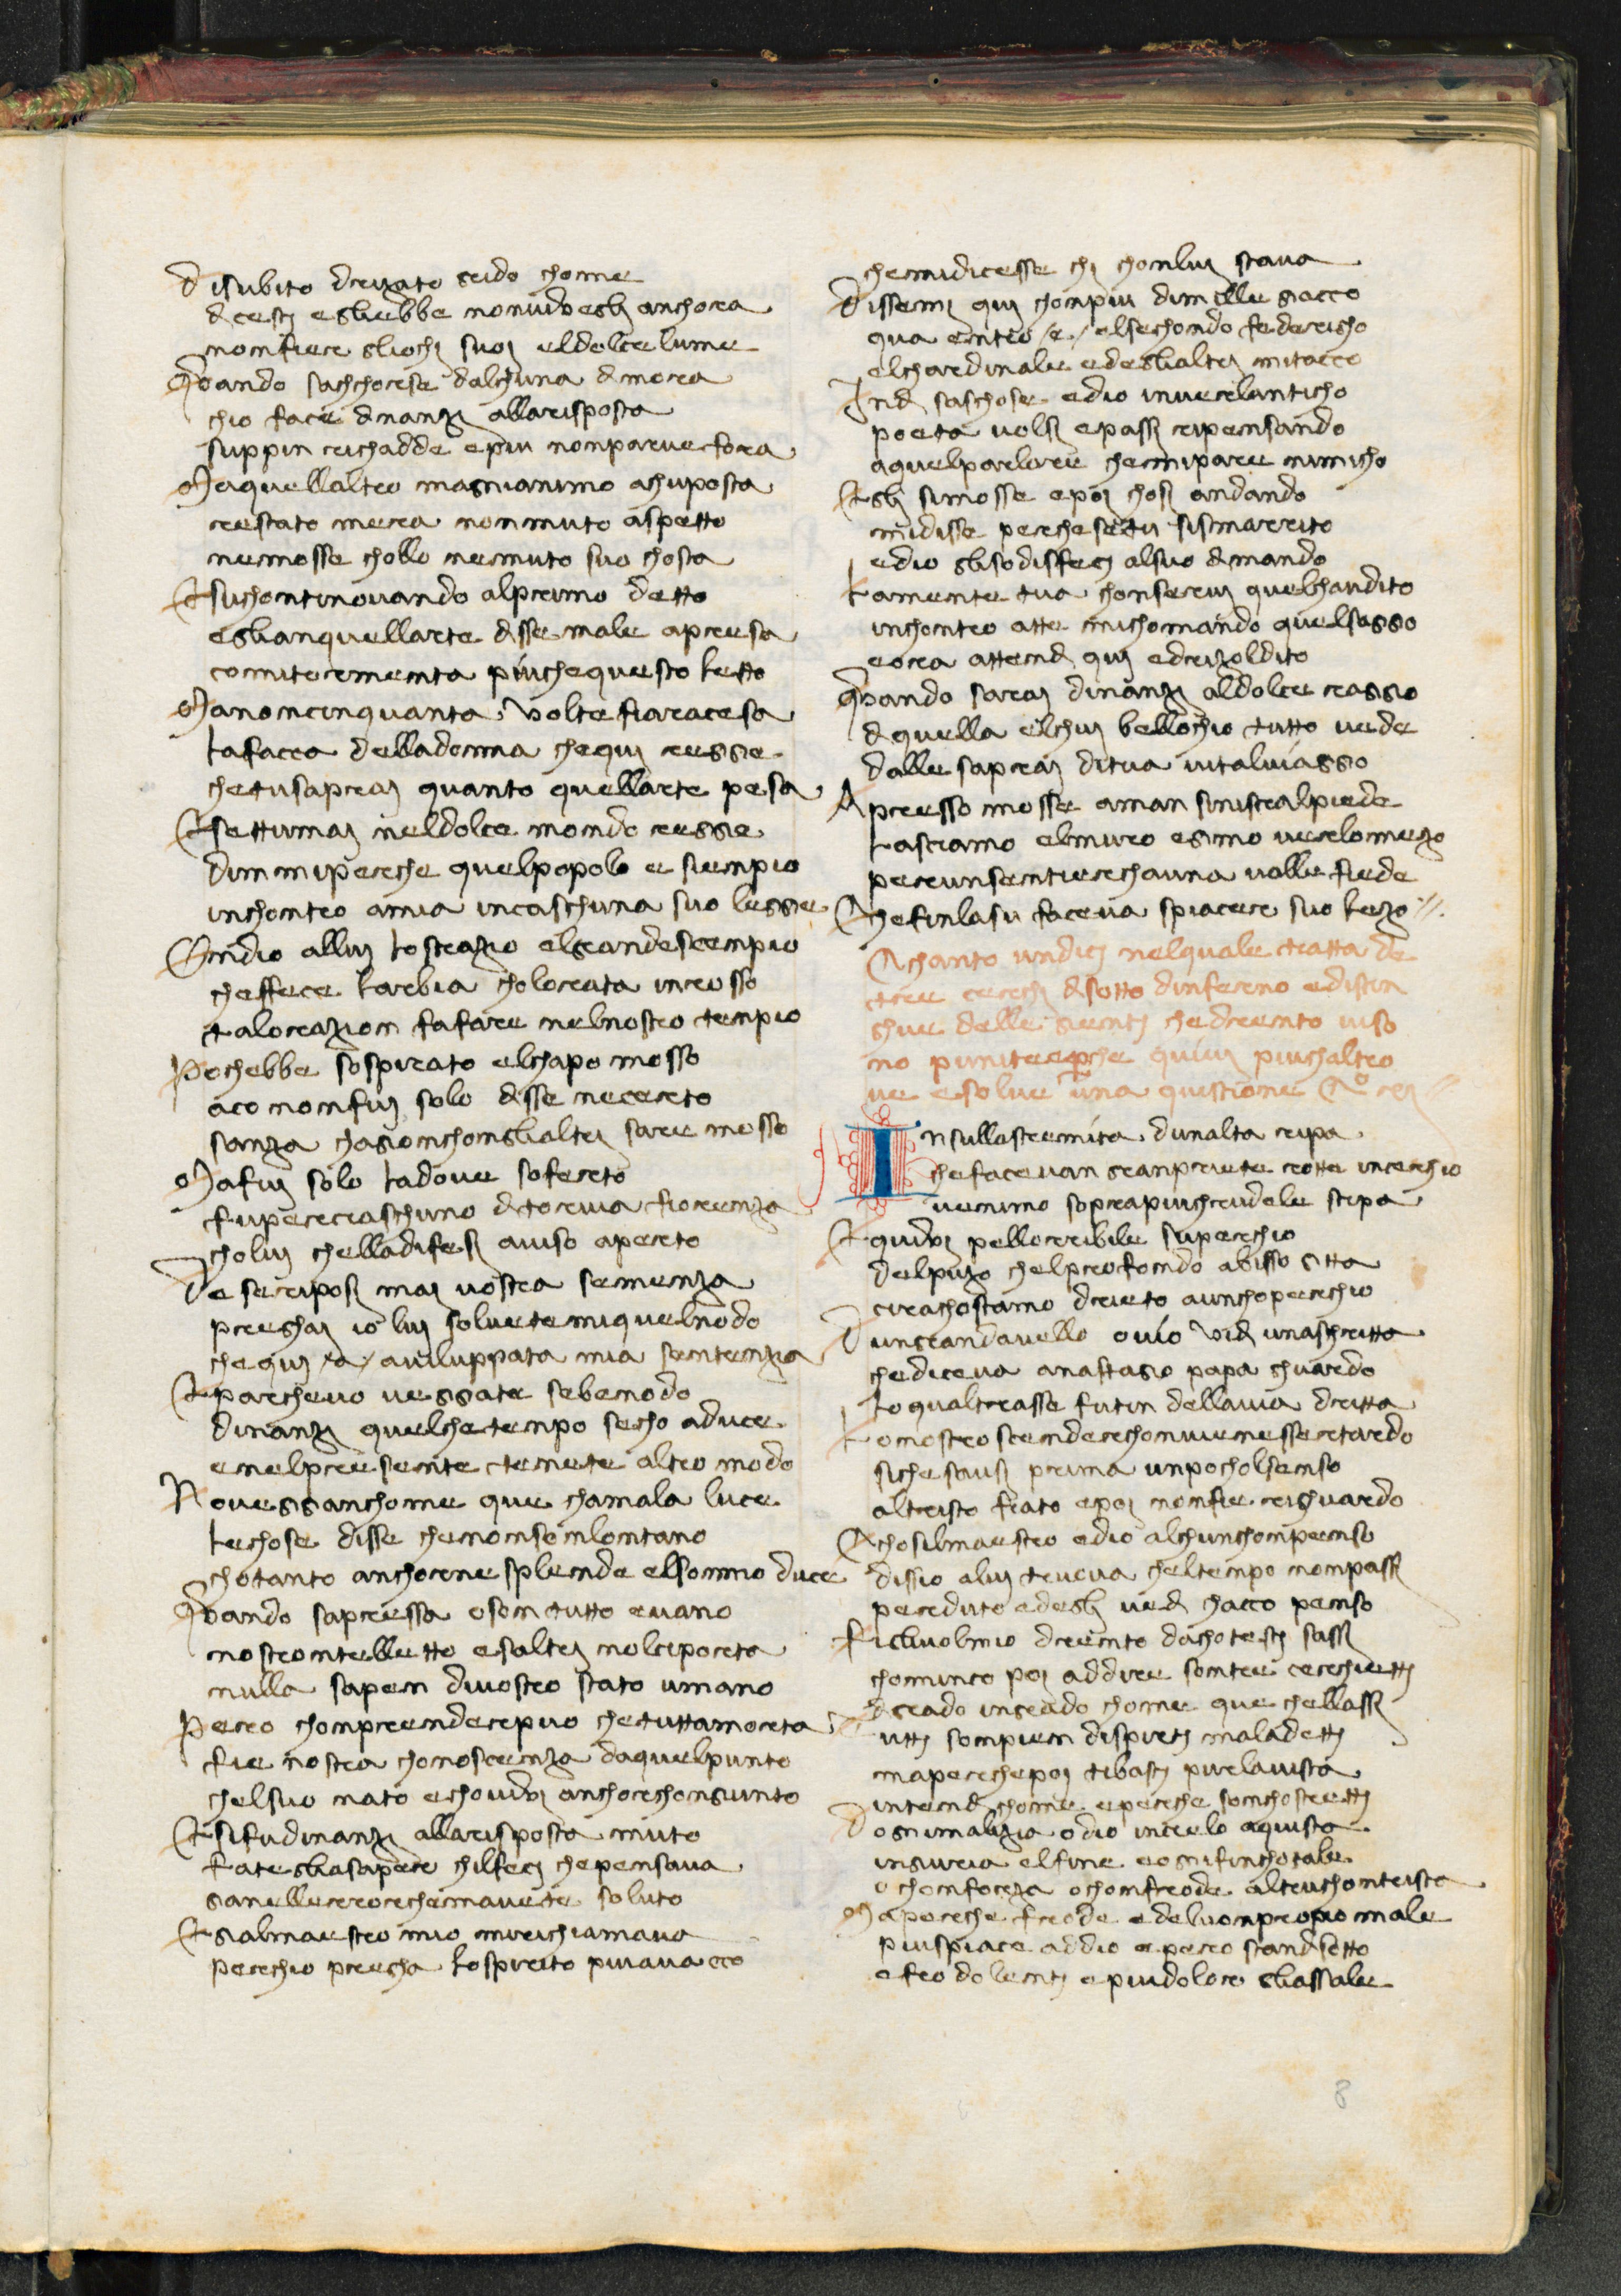 disubito drizato grido chome
dicesti eglebbe nonvivoegli anchora
nonfiere gliochi suoi eldolce lume
Quando sacchorse dalchuna dimora
chio facie dinanzi allarisposta
suppin richadde epiu nonparve fora
Maquellaltro magnianimo achuposta
restato mera nonmuto aspetto
nemosse chollo nemuto suo chosta
Esuchontinovando alprimo detto
eglianquellarte disse male apresa
comitormenta piuchequesto letto
Manoncinquanta volte fiaraccesa
lafacca delladonna chequi regge
chetusaprai quanto quellarte pesa
Esettumai neldolce mondo regge
dimmiperche quelpopolo e siempio
inchontro amia incaschuna sua legge
Ondio allui lostrazio elgrandescempio
cheffece larbia cholorata inrosso
talorazion fafare nelnostro tempio
Pochebbe sospirato elchapo mosso
aco nonfui solo disse necerto
sanza chagionchonglialtri sare mosso
Mafui solo ladove soferto
fuperciaschuno ditorvia fiorenza
cholui chelladifesi aviso aperto
De seriposi mai vostra semenza
preghai io lui solvetemiquelnodo
chequi /a/ aviluppata mia sentenzia
Eparchevo veggiate sebenodo
dinanzi quelchetempo secho aduce
enelpresente tenete altro modo
Noveggianchome que chamala luce
lechose disse chenonsenlontano
chotanto anchorne splende elsommo duce
Quando sapressa oson tutto evano
nostrontelletto esaltri nolciporta
nulla sapem divostro stato umano
Pero chomprenderpuo chetuttamorta
fie nostra chonoscenza daquelpunto
chelsuo nato echovivi anchorchongiunto
Esifudinanzi allarisposta muto
fateglisapere chilfeci chepensava
gianellerrorchemavete soluto
Egialmaestro mio mirichiamava
perchio pregha lospirito piuavaccio
chemidicesse chi chonlui stava
dissemi qui chonpiu dimille giacco
qua entro /e/ elsechondo federicho
elchardinale edeglialtri mitacco
Indi saschose edio inverlanticho
poeta volsi epassi ripensando
aquelparlare chemipare nimicho
Egli simosse epoi chosi andando
midisse perchesetu sismarrito
edio glisodisfeci alsuo dimando
Lamente tua chonservi quelchaudito
inchontro atte michomando quelsaggio
eora attendi qui edrizoldito
Quando sarai dinanzi aldolce raggio
diquella elchui bellochio tutto vede
dalle saprai ditua vitalviaggio
Apresso mosse aman sinistralpiede
lasciamo elmuro egimo verlomezo
perunsentierchauna valle fiede
Chefinlasu faceva spiacere suo lezo
Chanto undici nelquale tratta de
tre cerchi disotto dinferno edistin
ghue delle gienti chedrento viso
no puniteeperche quivi piuchaltro
ve esolve una questione Co xi
Insullastremita dunalta ripa
chefacevan granpriete rotte incerchio
venimo soprapiuchrudele stipa
Equivi pellorribile superchio
delpuzo chelprofondo abisso gitta
cirachostamo drieto aunchoperchio
Dungrandavello ovio vidi unaschritta
chediceva anastagio papa ghuardo
loqualtrasse futin dellavia dritta
Lonostroscenderchonvienessertardo
sichesausi prima unpocholsenso
altristo fiato epoi nonfie righuardo
Chosilmaestro edio alchunchompenso
dissio alui trueva cheltempo nonpassi
perduto edegli vedi chacco penso
Figluolmio drento dachotesti sassi
chominco poi addire sontre cerchietti
digrado ingrado chome que chellassi
Tutti sonpien dispiriti maladetti
maperchepoi tibasti purlavista
intendi chome eperche sonchostretti
Dognimalizia odio incielo aquista
ingiuria elfine eognifinchotale
ochonforza ochonfrode altruichontrista
Maperche frode edeluonpropio male
piuspiace addio epero standisotto
efro dolenti epiudolore gliassale
8